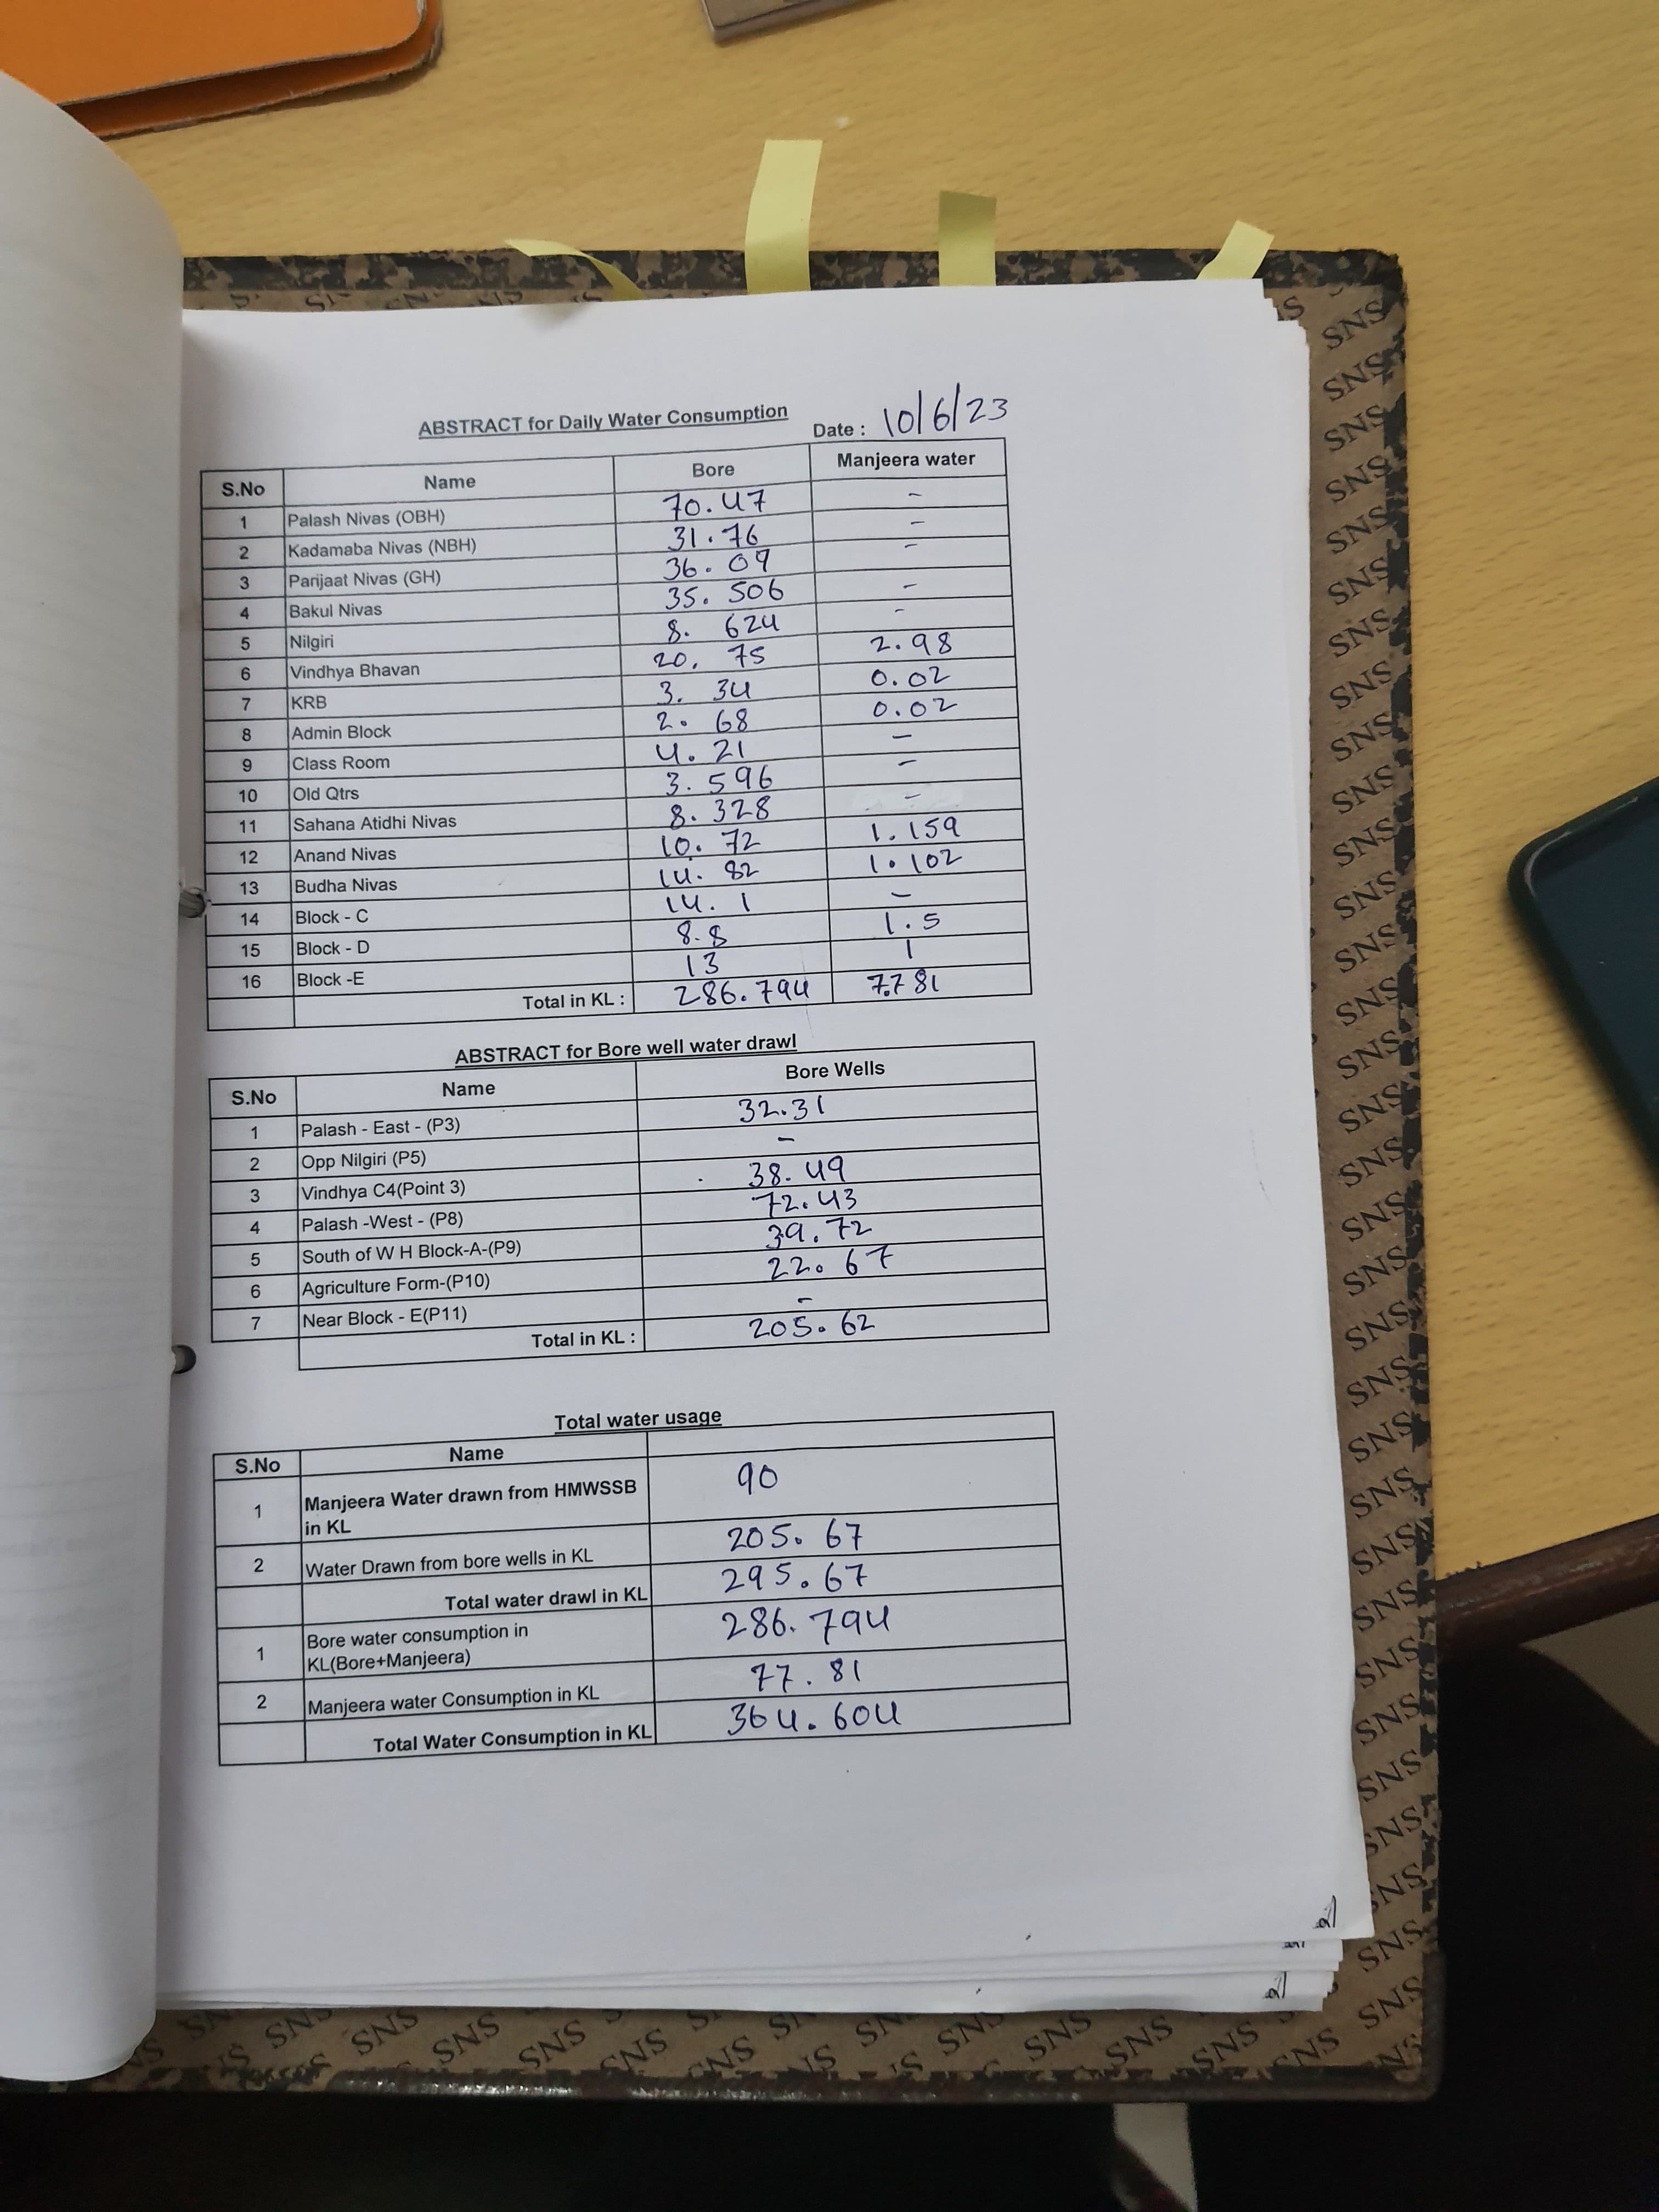 ABSTRACT for Daily Water Consumption
Date : 10/6/23
S.No Name Bore Manjeera water
1 Palash Nivas (OBH) 70.47 -
2 Kadamaba Nivas (NBH) 31.76 -
3 Parijaat Nivas (GH) 36.09 -
4 Bakul Nivas 35.506 -
5 Nilgiri 8.624 -
6 Vindhya Bhavan 20.75 2.98
7 KRB 3.34 0.02
8 Admin Block 2.68 0.02
9 Class Room 4.21 -
10 Old Qtrs 3.596 -
11 Sahana Atidhi Nivas 8.328 -
12 Anand Nivas 10.72 1.159
13 Budha Nivas 14.82 1.102
14 Block - C 14.1 -
15 Block - D 8.8 1.5
16 Block -E 13 1
Total in KL : 286.794 7.781
ABSTRACT for Bore well water drawl
S.No Name Bore Wells
1 Palash - East - (P3) 32.31
2 Opp Nilgiri (P5) -
3 Vindhya C4(Point 3) 38.49
4 Palash -West - (P8) 72.43
5 South of W H Block-A-(P9) 39.72
6 Agriculture Form-(P10) 22.67
7 Near Block - E(P11) -
Total in KL : 205.62
Total water usage
S.No Name
1 Manjeera Water drawn from HMWSSB in KL 90
2 Water Drawn from bore wells in KL 205.67
Total water drawl in KL 295.67
1 Bore water consumption in KL(Bore+Manjeera) 286.794
2 Manjeera water Consumption in KL 77.81
Total Water Consumption in KL 364.604
SNS